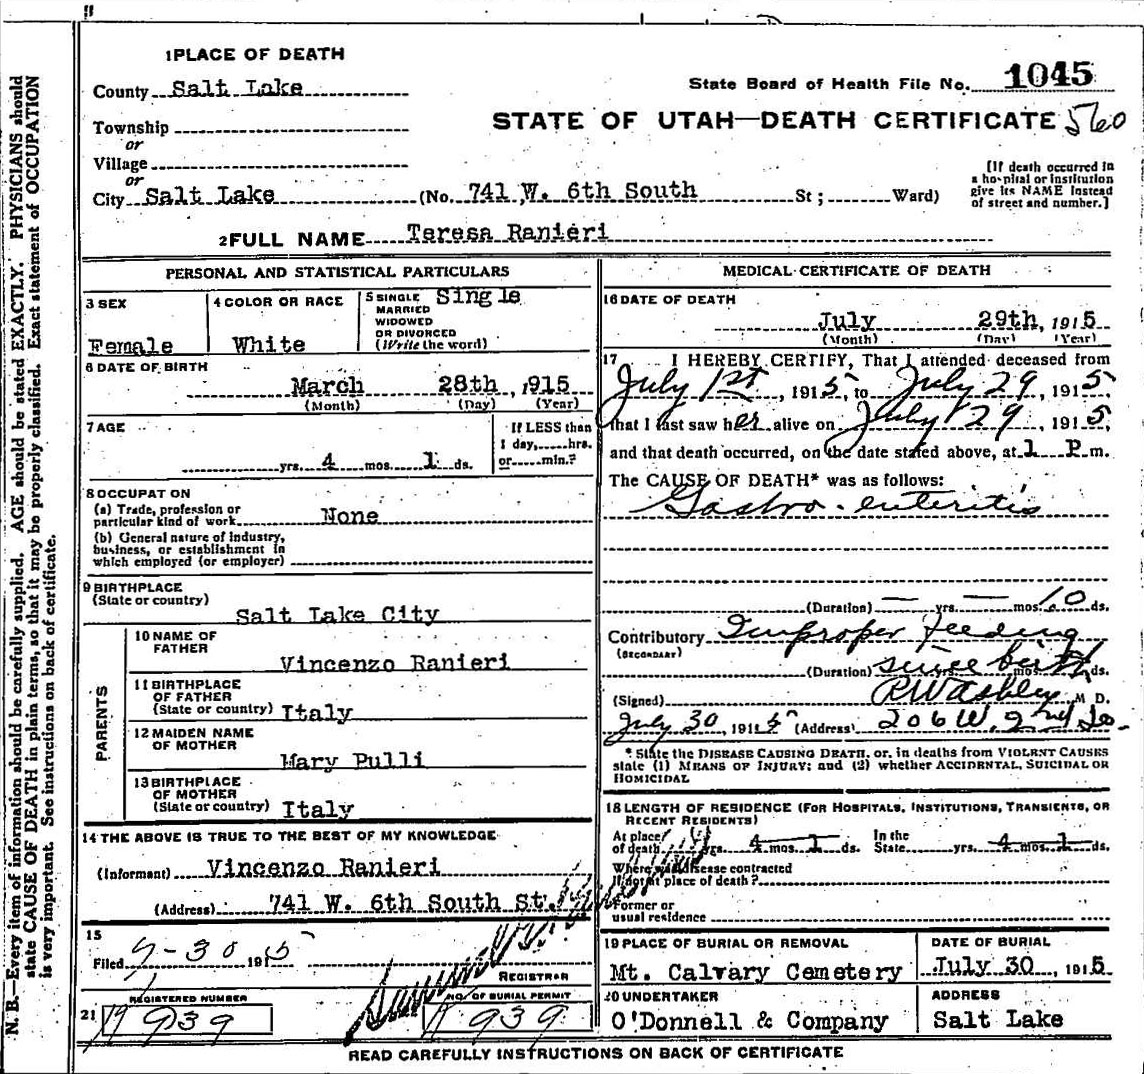 1 PLACE OF DEATH
County Salt Lake
State Board of Health File No. 1045
Township
or
Village
or
STATE OF UTAH—DEATH CERTIFICATE 560
City Salt Lake (No. 741 W. 6th South St; Ward)
[If death occurred in
a hospital or institution
give its NAME instead
of street and number.]
2 FULL NAME Teresa Ranieri
PERSONAL AND STATISTICAL PARTICULARS
3 SEX
Female
4 COLOR OR RACE
White
5 SINGLE
MARRIED
WIDOWED
OR DIVORCED
(Write the word)
Single
6 DATE OF BIRTH
March 28th, 1915
(Month) (Day) (Year)
7 AGE
yrs. 4 mos. 1 ds.
If LESS than
1 day, hrs.
or min.?
8 OCCUPAT ON
(a) Trade, profession or
particular kind of work None
(b) General nature of industry,
business, or establishment in
which employed (or employer)
9 BIRTHPLACE
(State or country)
Salt Lake City
PARENTS
10 NAME OF
FATHER
Vincenzo Ranieri
11 BIRTHPLACE
OF FATHER
(State or country) Italy
12 MAIDEN NAME
OF MOTHER
Mary Pulli
13 BIRTHPLACE
OF MOTHER
(State or country) Italy
14 THE ABOVE IS TRUE TO THE BEST OF MY KNOWLEDGE
(Informant) Vincenzo Ranieri
(Address) 741 W. 6th South St.
15
Filed 7-30 1915
REGISTRAR
21 REGISTERED NUMBER
939
NO. OF BURIAL PERMIT
939
MEDICAL CERTIFICATE OF DEATH
16 DATE OF DEATH
July 29th, 1915
(Month) (Day) (Year)
17 I HEREBY CERTIFY, That I attended deceased from
July 1st, 1915, to July 29, 1915,
that I last saw her alive on July 29, 1915,
and that death occurred, on the date stated above, at 1 P.m.
The CAUSE OF DEATH* was as follows:
Gastro-enteritis
(Duration) — yrs. — mos. 10 ds.
Contributory Improper feeding
(SECONDARY)
(Duration) since birth mos. ds.
(Signed) R W Ashley M D.
July 30 1915 (Address) 206 W. 2nd So.
* State the DISEASE CAUSING DEATH, or, in deaths from VIOLENT CAUSES
state (1) MEANS OF INJURY; and (2) whether ACCIDENTAL, SUICIDAL OR
HOMICIDAL
18 LENGTH OF RESIDENCE (FOR HOSPITALS, INSTITUTIONS, TRANSIENTS, OR
RECENT RESIDENTS)
At place
of death yrs. 4 mos. 1 ds.
In the
State yrs. 4 mos. 1 ds.
Where was disease contracted
If not at place of death?
Former or
usual residence
19 PLACE OF BURIAL OR REMOVAL
Mt. Calvary Cemetery
DATE OF BURIAL
July 30, 1915
20 UNDERTAKER
O'Donnell & Company
ADDRESS
Salt Lake
READ CAREFULLY INSTRUCTIONS ON BACK OF CERTIFICATE
N. B.—Every item of information should be carefully supplied. AGE should be stated EXACTLY. PHYSICIANS should
state CAUSE OF DEATH in plain terms, so that it may be properly classified. Exact statement of OCCUPATION
is very important. See instructions on back of certificate.